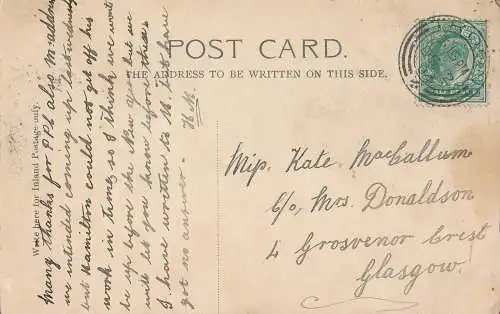 POST CARD.
THE ADDRESS TO BE WRITTEN ON THIS SIDE.
Write here for Inland Postage only.
Many thanks for PPC also m. address
we intended coming up last Wednesday
but Hamilton could not get off his
work in time, so I think we won't
be up before the New Year but we
will let you know before then.
I have written to M. but have
got no answer —
Miss Kate MacCallum
C/o, Mrs. Donaldson
4 Grosvenor Crest
Glasgow.